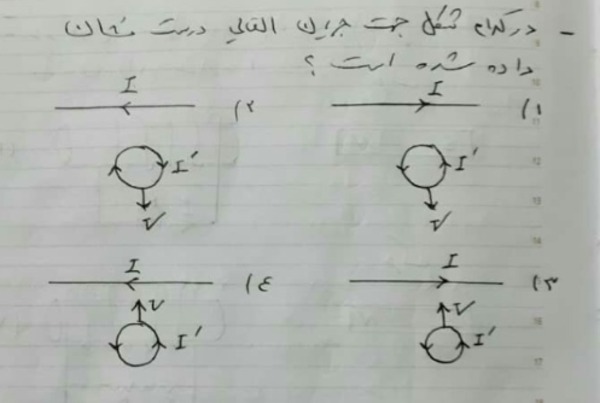 - در کدام شکل جهت جریان القایی درست نشان
داده شده است ؟
I
(۱
I'
V
I
(۲
I'
V
I
(۳
V
I'
I
(٤
V
I'